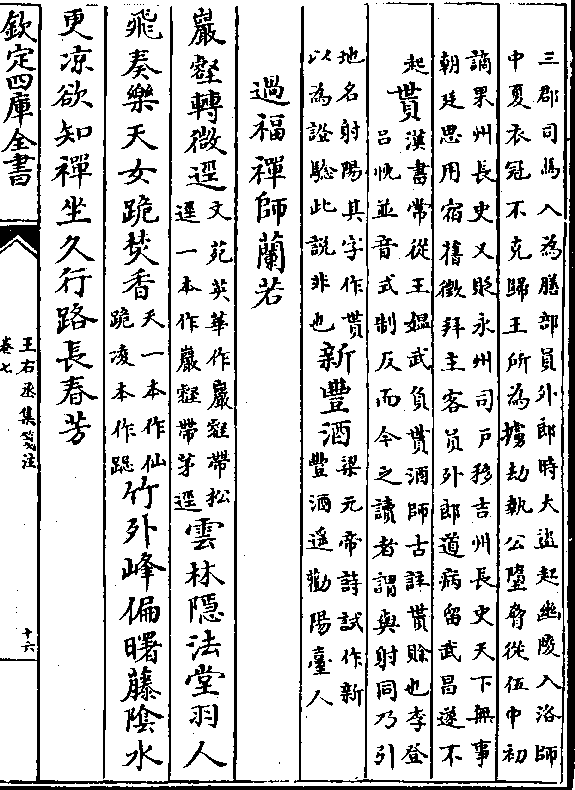 三郡司馬入為膳部員外郎時大盜起幽陵入洛師
中夏衣冠不克歸王所為擄劫執公墮脅從伍中初
謫果州長史又貶永州司戶移吉州長史天下無事
朝廷思用宿舊徵拜主客員外郎道病留武昌遂不
起
貰
漢書常從王媼武負貰酒師古註貰賒也李登
呂忱並音式制反而今之讀者謂與射同乃引
地名射陽其字作貰
以為證驗此説非也
新豐酒
梁元帝詩試作新
豐酒遥勸陽臺人
過福禪師蘭若
巖壑轉微逕
文苑英華作巖壑帶松
逕一本作巖壑帶茅逕
雲林隱法堂羽人
飛奏樂天女跪焚香
天一本作仙
跪凌本作跽
竹外峰偏曙藤隂水
更凉欲知禪坐久行路長春芳
欽定四庫全書
王右丞集箋注
卷七
十六